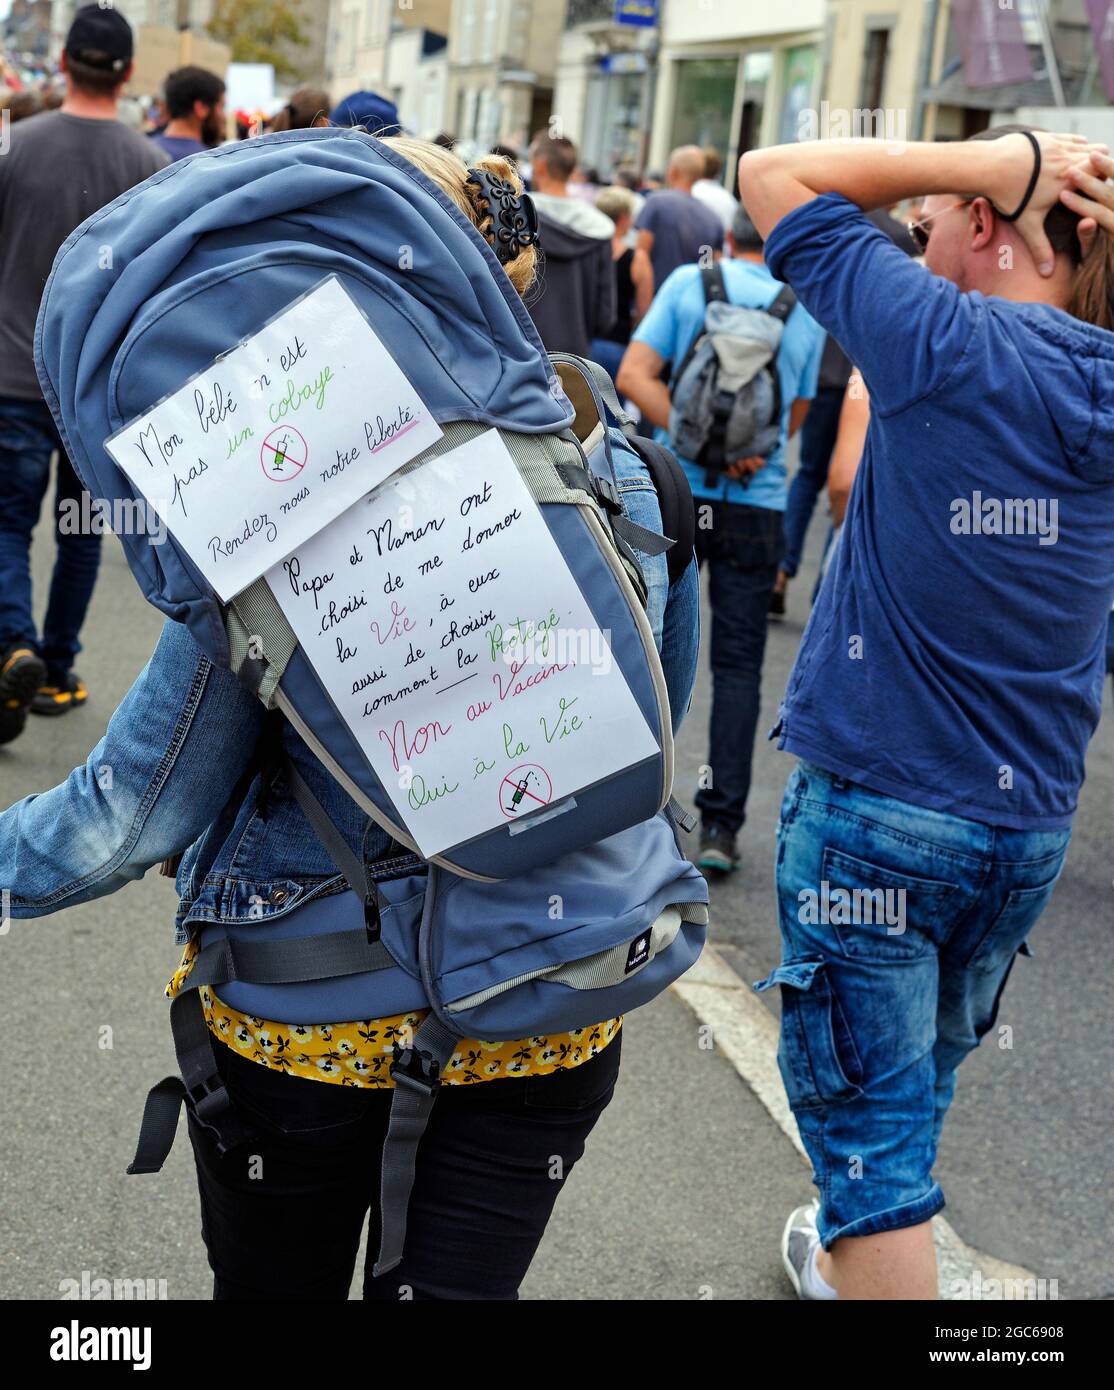 Mon bébé n'est
pas un cobaye.
Rendez nous notre liberté.
Papa et Maman ont
choisi de me donner
la Vie, à eux
aussi de choisir
comment la Protégé.
Non au Vaccin.
Oui à la Vie.
alamy
alamy
Image ID: 2GC6908
www.alamy.com